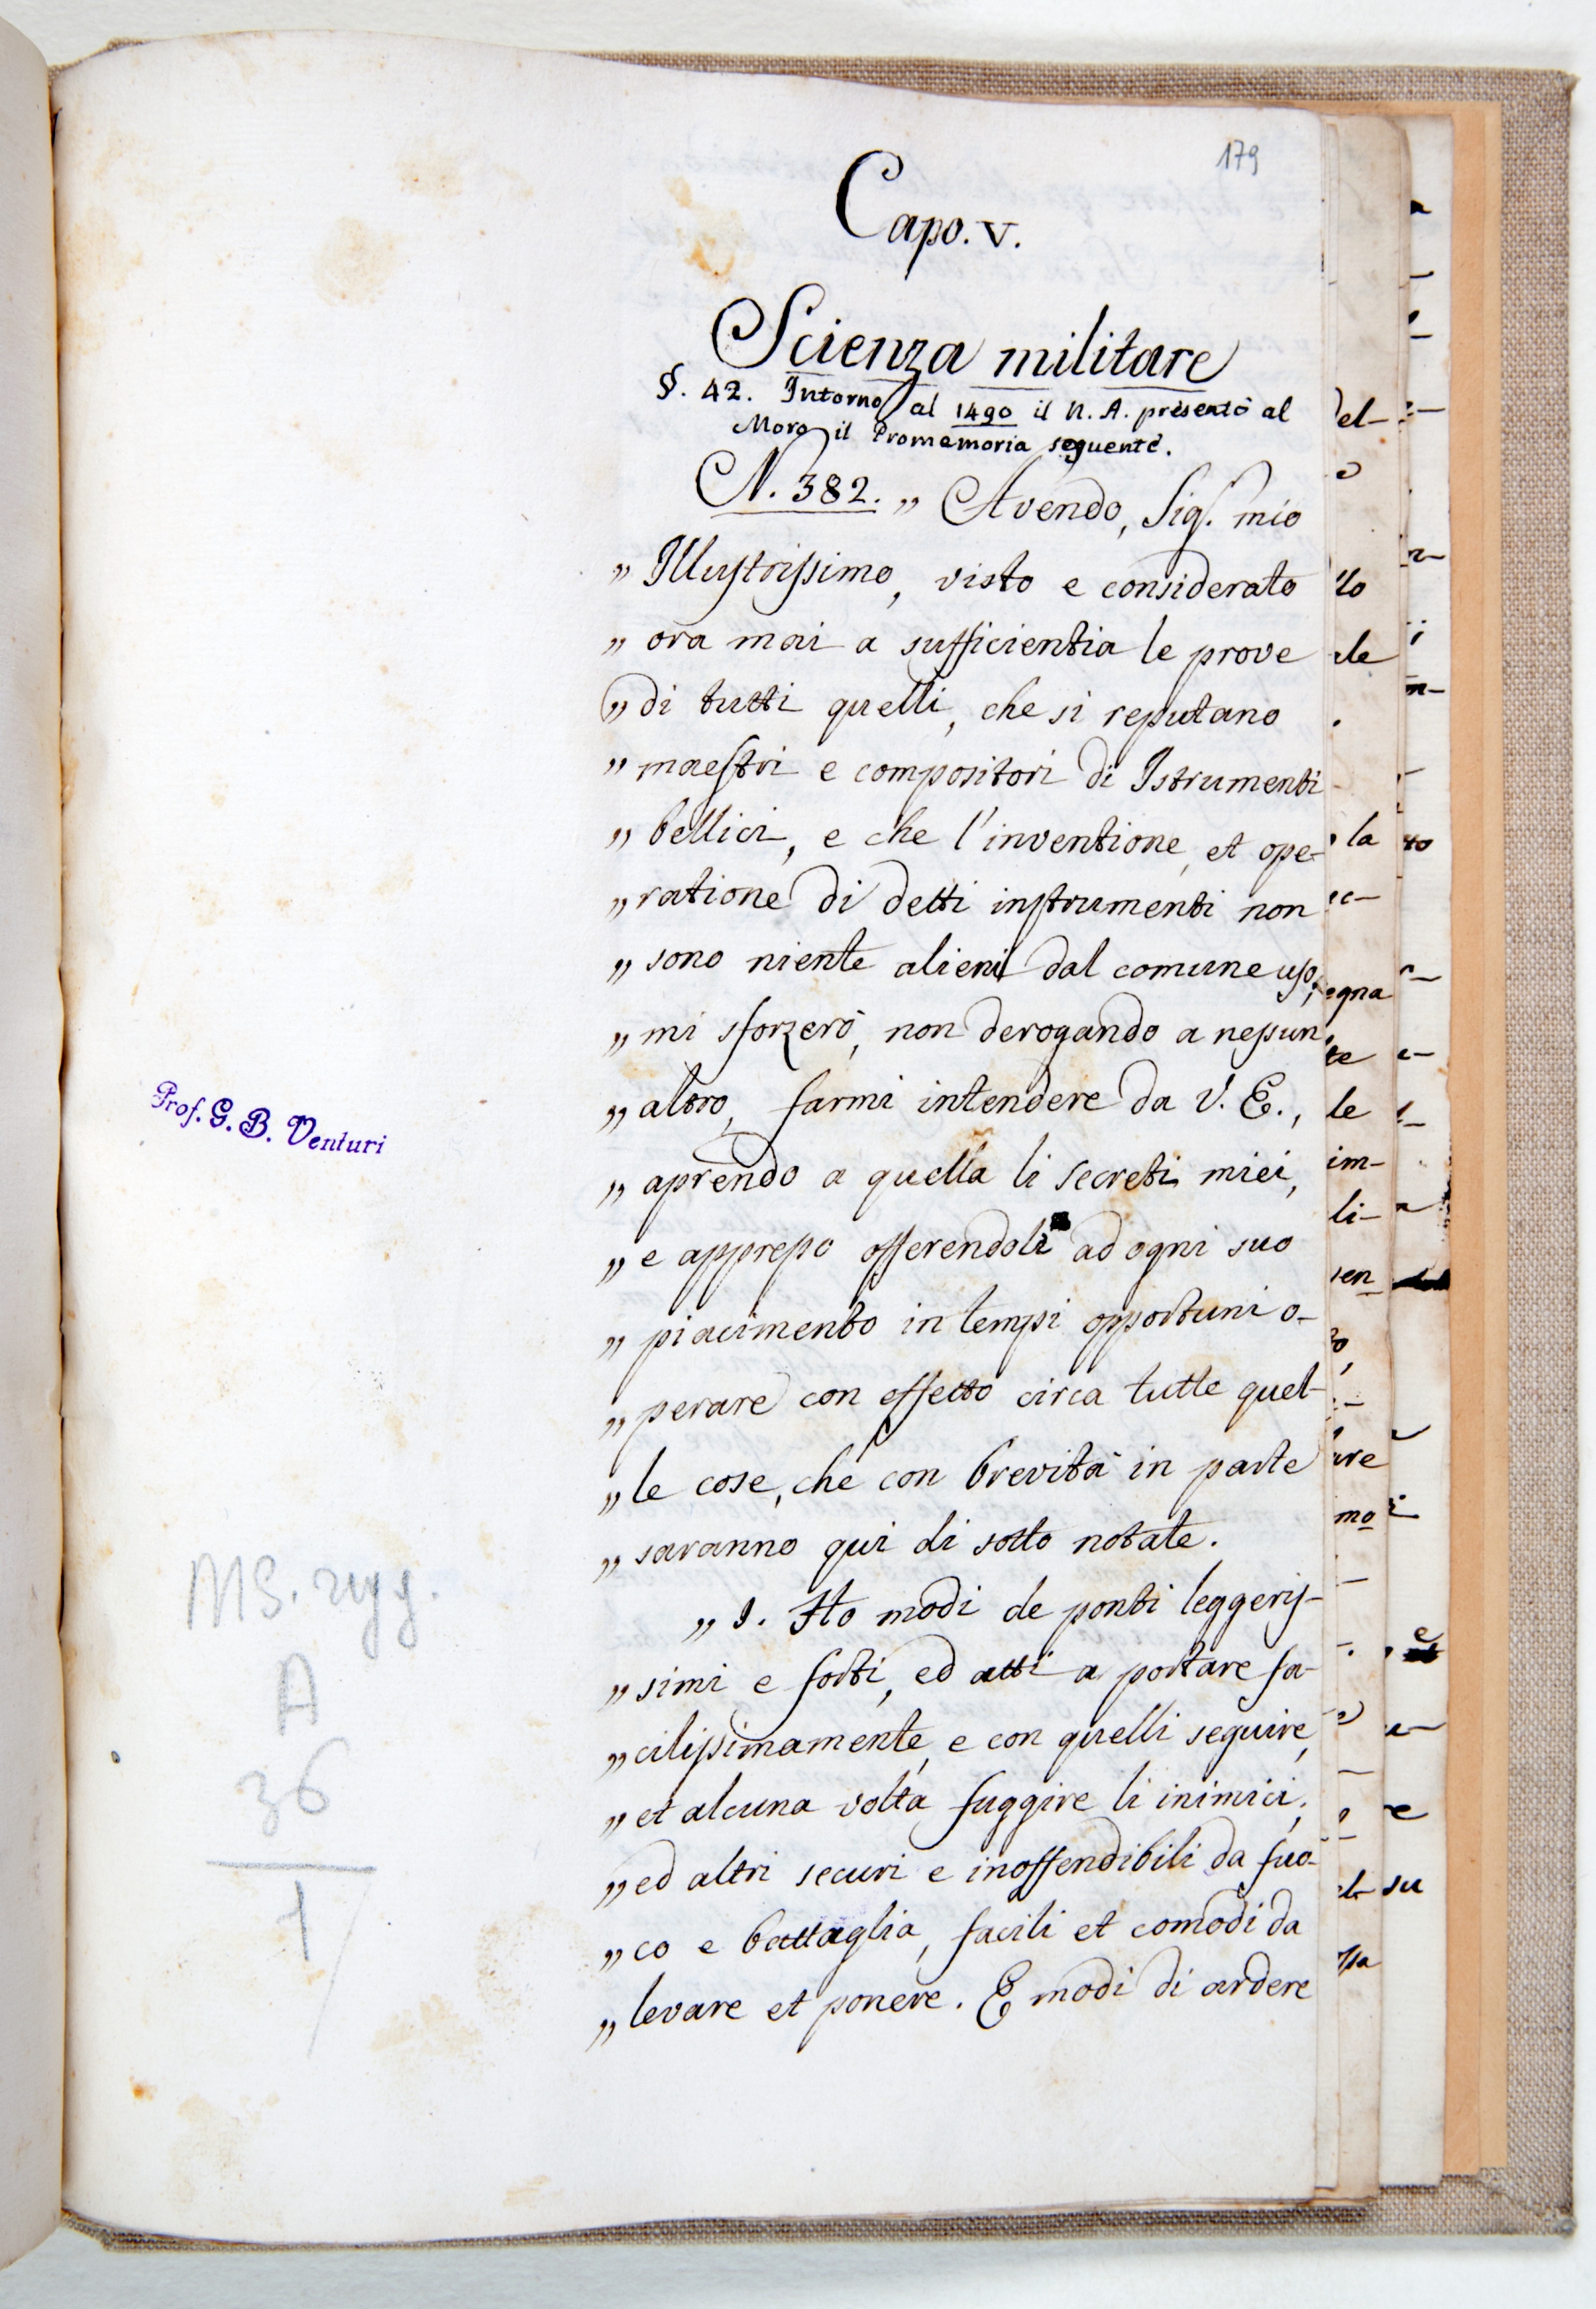 179
Capo. V.
Scienza militare
§. 42. Intorno al 1490 il N. A. presentò al
Moro il Promemoria seguente.
N. 382. „ Avendo, Sig. mio
„ Illustrissimo, visto e considerato
„ ora mai a sufficientia le prove
„ di tutti quelli, che si reputano
„ maestri e compositori di Istrumenti
„ bellici, e che l'inventione, et ope-
„ ratione di detti instrumenti non
„ sono niente alieni dal comune uso;
„ mi sforzerò, non derogando a nessun
„ altro, farmi intendere da V. E.,
„ aprendo a quella li secreti miei,
„ e appresso offerendoli ad ogni suo
„ piacimento in tempi opportuni o-
„ perare con effetto circa tutte quel-
„ le cose, che con brevità in parte
„ saranno qui di sotto notate.
„ 1. Ho modi de ponti leggeris-
„ simi e forti, ed atti a portare fa-
„ cilissimamente, e con quelli seguire,
„ et alcuna volta fuggire li inimici;
„ ed altri securi e inoffendibili da fuo-
„ co e battaglia, facili et comodi da
„ levare et ponere. E modi di ardere
Prof. G. B. Venturi
MS. regg.
A
36
1